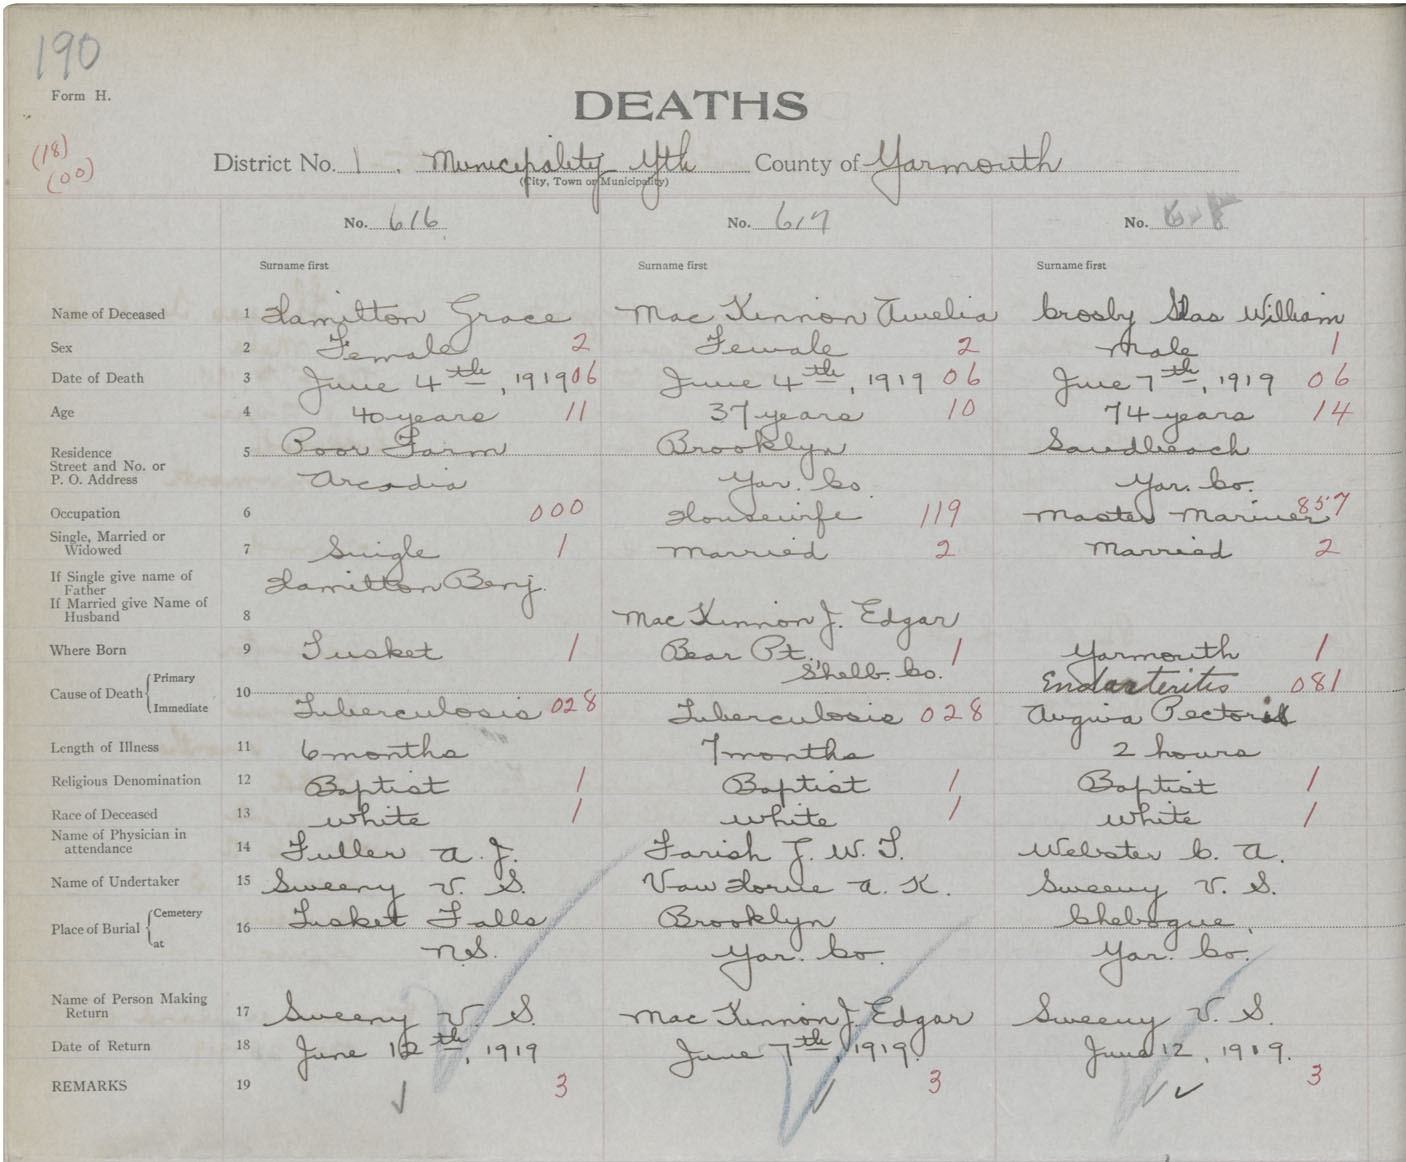 190
Form H.
DEATHS
(18)
(00)
District No. 1. Municipality Yth County of Yarmouth
(City, Town or Municipality)
No. 616 No. 617 No.
Surname first Surname first Surname first
Name of Deceased 1 Hamilton Grace Mac Kinnon Amelia Crosby Silas William
Sex 2 Female 2 Female 2 Male 1
Date of Death 3 June 4th, 1919 06 June 4th, 1919 06 June 7th, 1919 06
Age 4 40 years 11 37 years 10 74 years 14
Residence 5 Poor Farm Brooklyn Sandbeach
Street and No. or
P. O. Address Arcadia Yar. Co. Yar. Co.
Occupation 6 000 Housewife 119 Master Mariner 857
Single, Married or
Widowed 7 Single 1 Married 2 Married 2
If Single give name of
Father Hamilton Benj.
If Married give Name of
Husband 8 Mac Kinnon J. Edgar
Where Born 9 Tusket 1 Bear Pt. 1 Yarmouth 1
Shelb. Co.
Cause of Death Primary 10 Endarteritis 081
Immediate Tuberculosis 028 Tuberculosis 028 Angina Pectoris
Length of Illness 11 6 months 7 months 2 hours
Religious Denomination 12 Baptist 1 Baptist 1 Baptist 1
Race of Deceased 13 White 1 White 1 White 1
Name of Physician in
attendance 14 Fuller A. J. Farish J. W. T. Webster C. A.
Name of Undertaker 15 Sweeny V. S. Van Horne A. K. Sweeny V. S.
Place of Burial Cemetery 16 Tusket Falls Brooklyn Chebogue,
at N.S. Yar. Co. Yar. Co.
Name of Person Making
Return 17 Sweeny V. S. Mac Kinnon J. Edgar Sweeny V. S.
Date of Return 18 June 12th, 1919 June 7th, 1919. June 12, 1919.
REMARKS 19 3 3 3